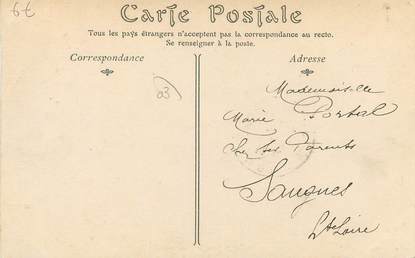 6€
Carte Postale
Tous les pays étrangers n'acceptent pas la correspondance au recto.
Se renseigner à la poste.
Correspondance
Adresse
03
Mademoiselle
Marie Portal
chez ses Parents
Saugues
Hte Loire